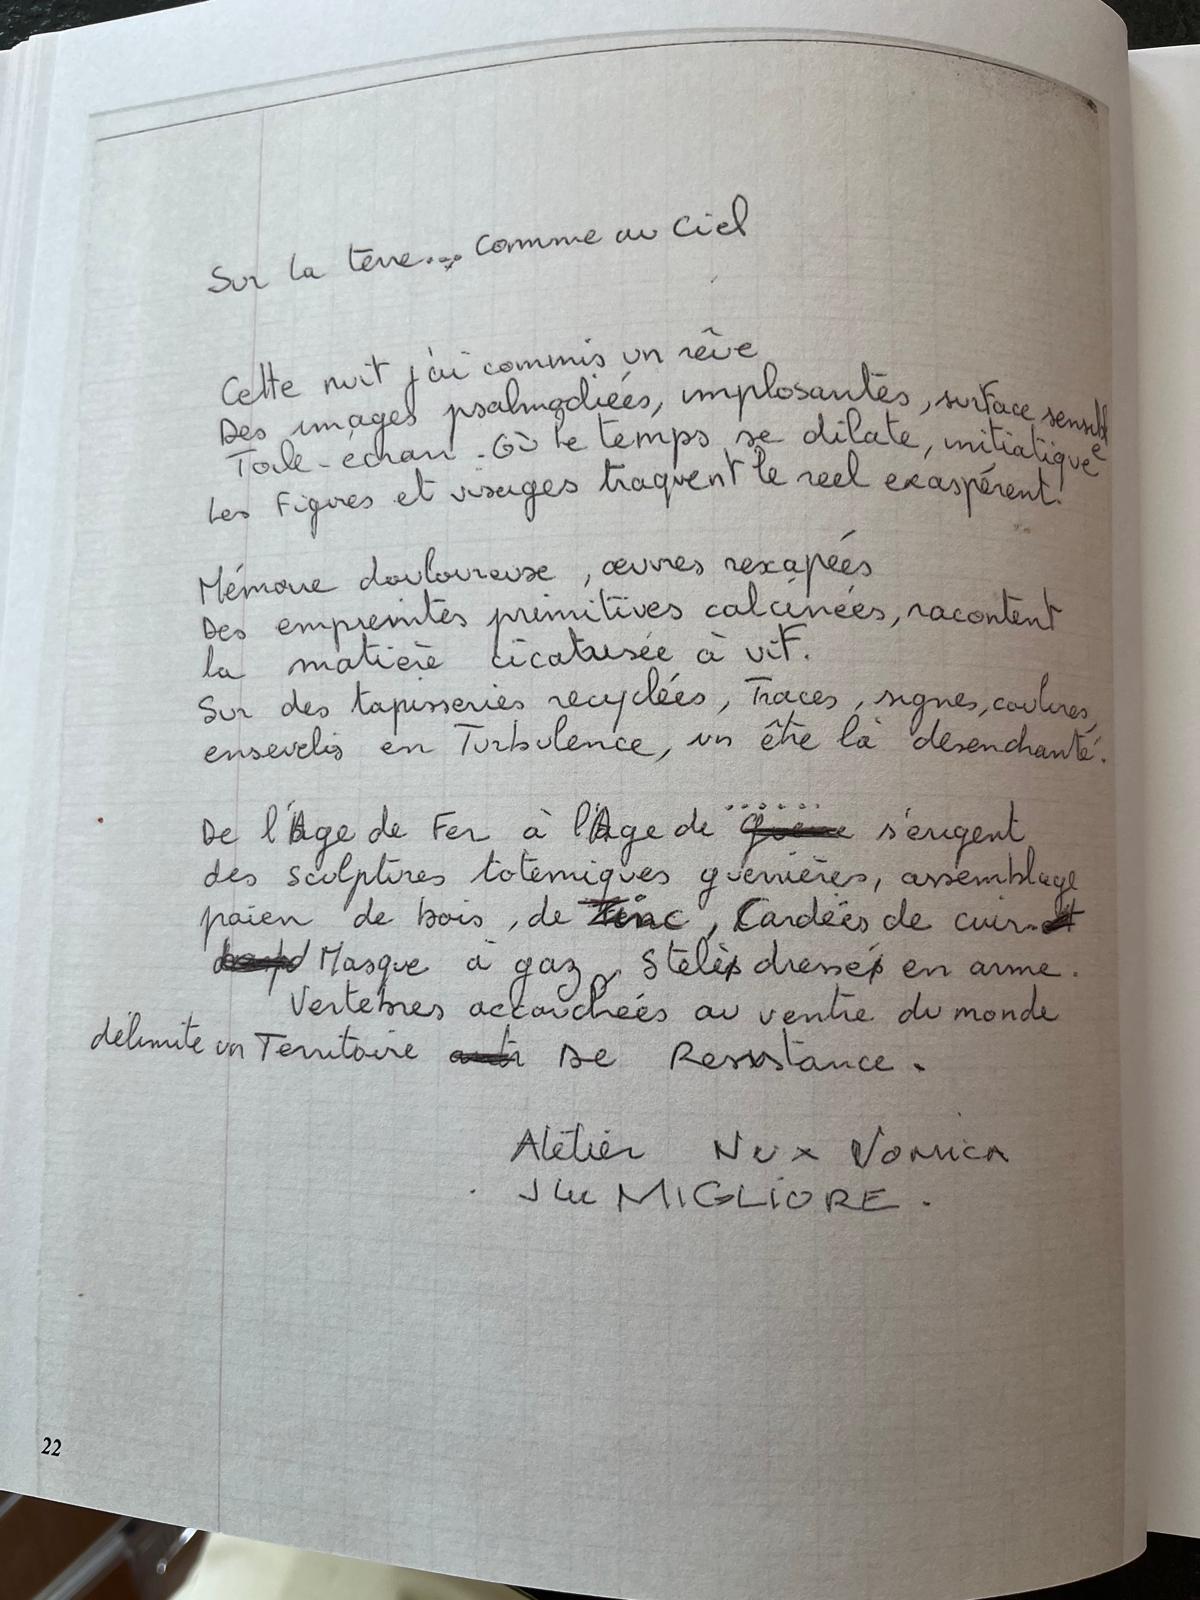 Sur la terre... Comme au Ciel
Cette nuit j'ai commis un rêve
Des images psalmodiées, implosantes, surface sensible
Toile-écran. Où le temps se dilate, initiatique
Les Figures et visages traquent le reel exaspérent.
Mémoire douloureuse, œuvres rescapées
Des empreintes primitives calcinées, racontent
la matière cicatrisée à vif.
Sur des tapisseries recyclées, Traces, signes, coulures,
ensevelis en Turbulence, un être là désenchanté.
De l'Age de Fer à l'Age de ...... s'érigent
des sculptures totemiques guerrières, assemblage
païen de bois, de Zinc, Cardées de cuir
Masque à gaz, Stèle dressé en arme.
Vertebres accouchées au ventre du monde
délimite un Territoire De Resistance.
Atelier Nux Vomica
MIGLIORE.
22